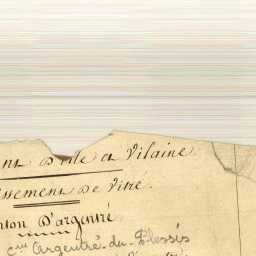 ent D'ille et Vilaine.
issement De Vitré.
nton D'argentré
C.ne Argentré-du-Plessis